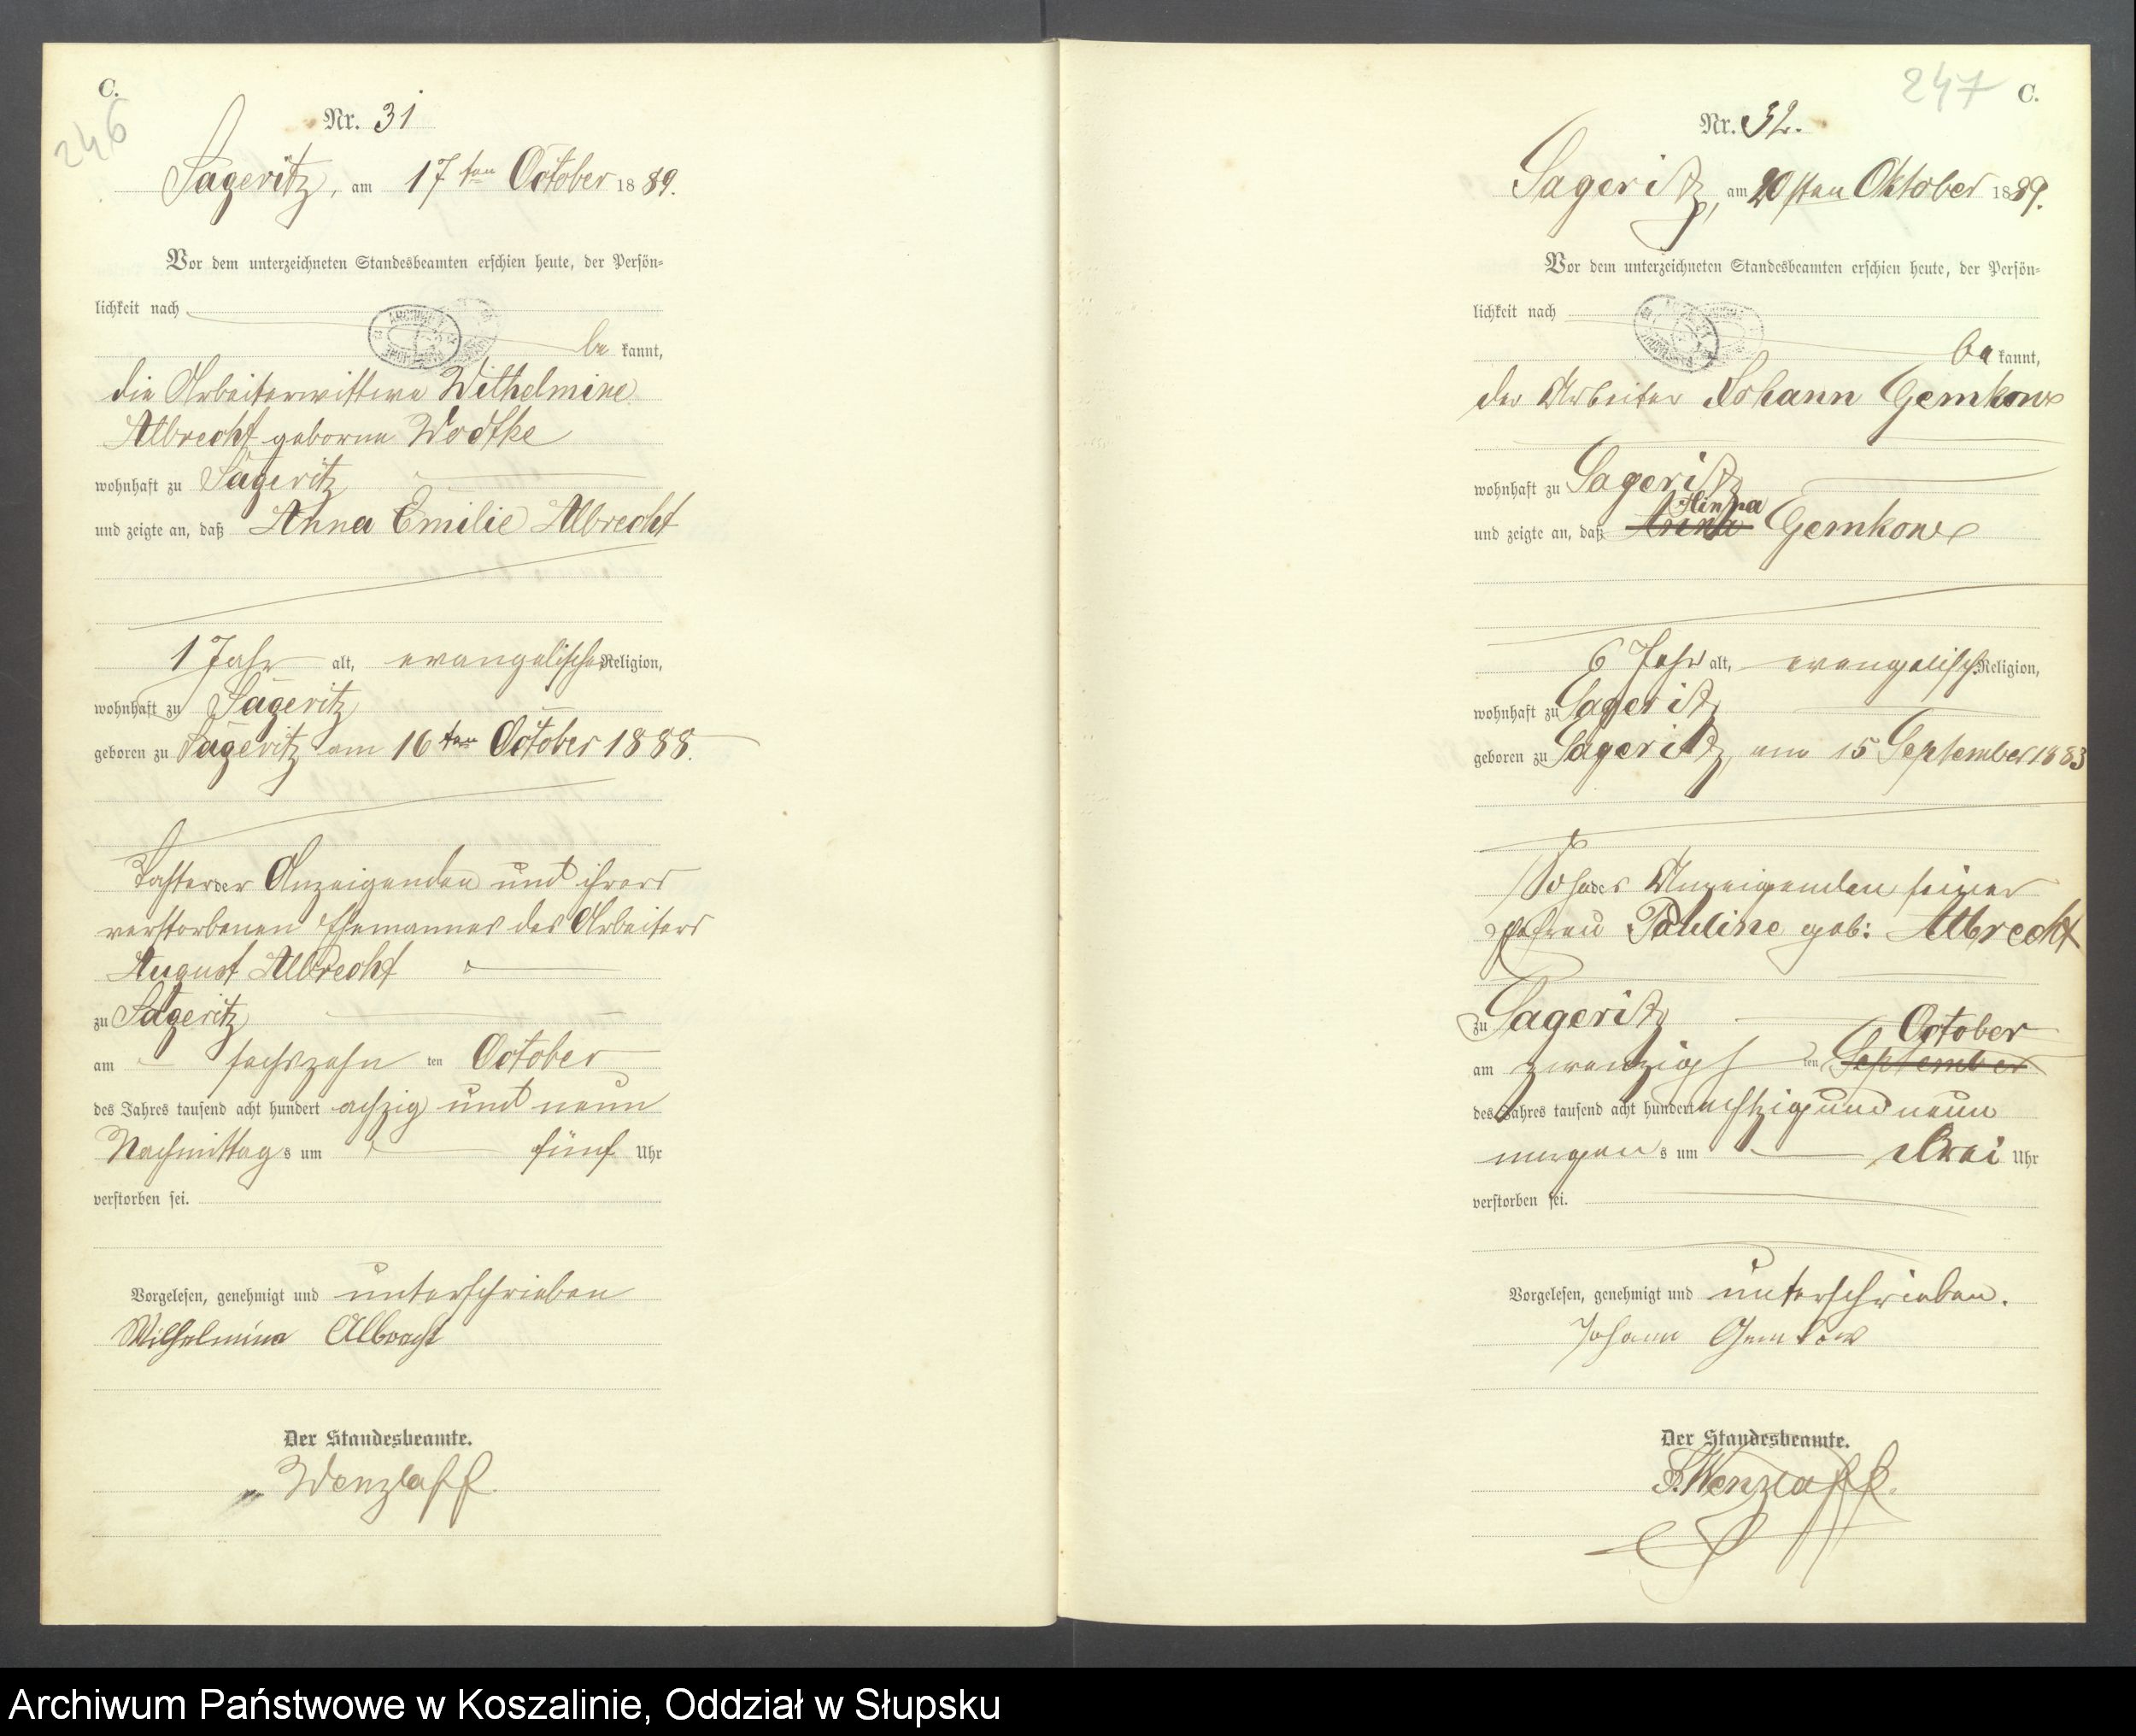 C.
246
Nr. 31
Sageritz, am 17ten October 1889.
Vor dem unterzeichneten Standesbeamten erschien heute, der Persön-
lichkeit nach
be kannt,
die Arbeiterwittwe Wilhelmine
Albrecht geborne Wodtke
wohnhaft zu Sageritz
und zeigte an, daß Anna Emilie Albrecht
1 Jahr alt, evangelischer Religion,
wohnhaft zu Sageritz
geboren zu Sageritz am 16ten October 1888.
Tochter der Anzeigenden und ihres
verstorbenen Ehemannes des Arbeiters
August Albrecht
zu Sageritz
am sechszehn ten October
des Jahres tausend acht hundert achzig und neun
Nachmittags um fünf Uhr
verstorben sei.
Vorgelesen, genehmigt und unterschrieben
Wilhelmine Albrecht
Der Standesbeamte.
Wenzlaff.
247 C.
Nr. 32.
Sageritz, am 20sten Oktober 1889.
Vor dem unterzeichneten Standesbeamten erschien heute, der Persön-
lichkeit nach
be kannt,
der Arbeiter Johann Gemkow
wohnhaft zu Sageritz
und zeigte an, daß Gemkow
6 Jahr alt, evangelisch Religion,
wohnhaft zu Sageritz
geboren zu Sageritz, am 15 September 1883
des Anzeigenden seiner
Ehefrau Pauline geb: Albrecht
zu Sageritz
October
am zwanzigs ten September
des Jahres tausend acht hundert achtzig und neun
morgens um drei Uhr
verstorben sei.
Vorgelesen, genehmigt und unterschrieben.
Johann Gemkow
Der Standesbeamte.
Wenzlaff.
Archiwum Państwowe w Koszalinie, Oddział w Słupsku